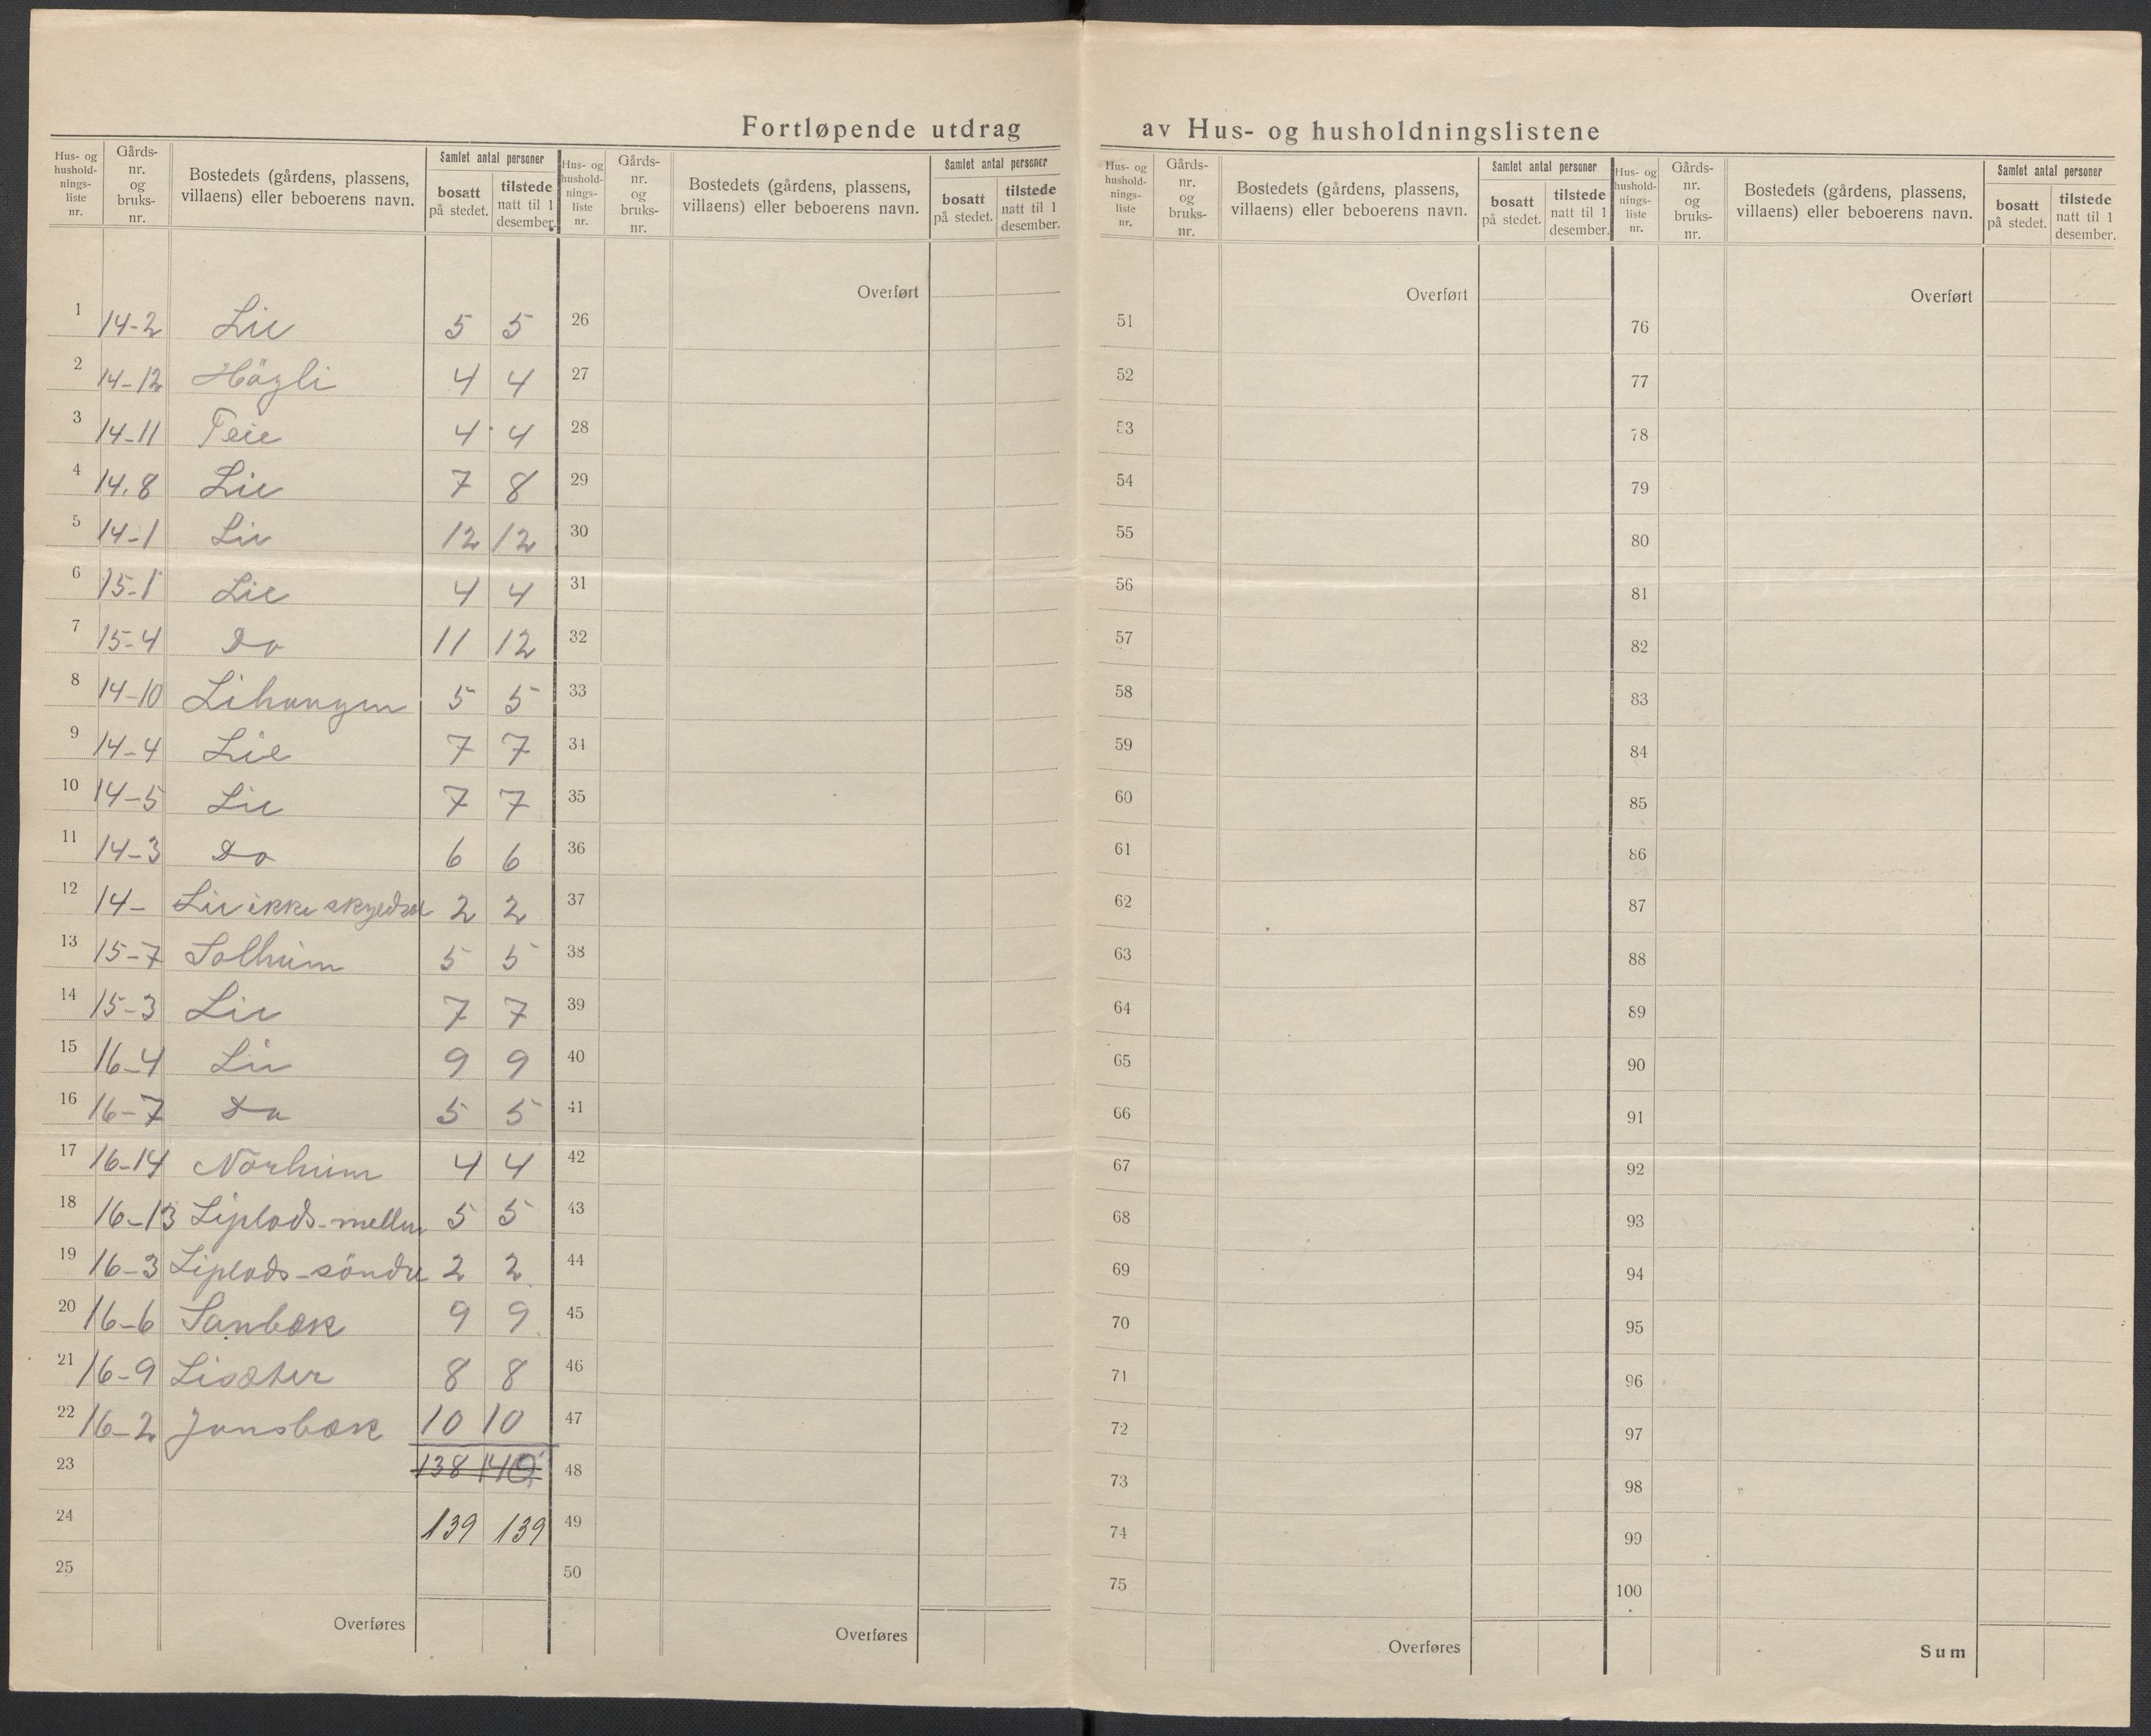 Fortløpende utdrag av Hus- og husholdningslistene
Hus- og hushold- nings- liste nr. | Gårds- nr. og bruks- nr. | Bostedets (gårdens, plassens, villaens) eller beboerens navn. | Samlet antal personer | bosatt på stedet. | tilstede natt til 1 desember.
1 14-2 Lie 5 5
2 14-12 Högli 4 4
3 14-11 Teie 4 4
4 14.8 Lie 7 8
5 14-1 Lie 12 12
6 15-1 Lie 4 4
7 15-4 Do 11 12
8 14-10 Lihaugen 5 5
9 14-4 Lie 7 7
10 14-5 Lie 7 7
11 14-3 Do 6 6
12 14- Lie ikke 2 2
13 15-7 Solheim 5 5
14 15-3 Lie 7 7
15 16-4 Lie 9 9
16 16-7 Do 5 5
17 16-14 Norheim 4 4
18 16-13 Liplads-mellem 5 5
19 16-3 Liplads-söndre 2 2
20 16-6 Sanbæk 9 9
21 16-9 Lisæter 8 8
22 16-2 Jonsbæk 10 10
23 138 140
24 139 139
25
Overføres
Hus- og hushold- nings- liste nr. | Gårds- nr. og bruks- nr. | Bostedets (gårdens, plassens, villaens) eller beboerens navn. | Samlet antal personer | bosatt på stedet. | tilstede natt til 1 desember.
Overført
26
27
28
29
30
31
32
33
34
35
36
37
38
39
40
41
42
43
44
45
46
47
48
49
50
Overføres
Hus- og hushold- nings- liste nr. | Gårds- nr. og bruks- nr. | Bostedets (gårdens, plassens, villaens) eller beboerens navn. | Samlet antal personer | bosatt på stedet. | tilstede natt til 1 desember.
Overført
51
52
53
54
55
56
57
58
59
60
61
62
63
64
65
66
67
68
69
70
71
72
73
74
75
Overføres
Hus- og hushold- nings- liste nr. | Gårds- nr. og bruks- nr. | Bostedets (gårdens, plassens, villaens) eller beboerens navn. | Samlet antal personer | bosatt på stedet. | tilstede natt til 1 desember.
Overført
76
77
78
79
80
81
82
83
84
85
86
87
88
89
90
91
92
93
94
95
96
97
98
99
100
Sum